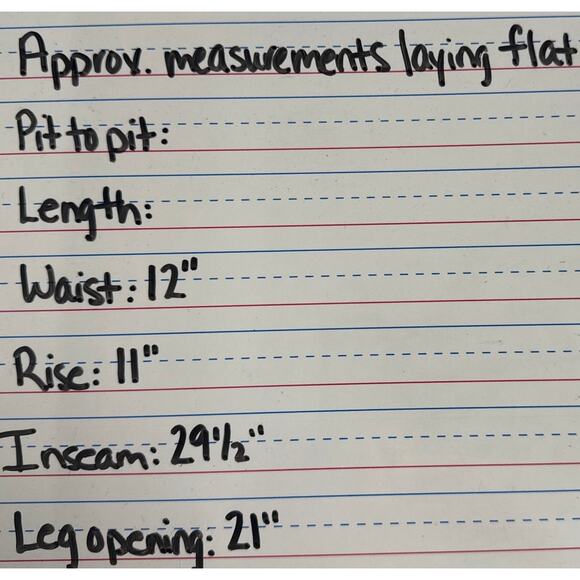 Approx. measurements laying flat
Pit to pit:
Length:
Waist: 12"
Rise: 11"
Inseam: 29 1/2"
Leg opening: 21"